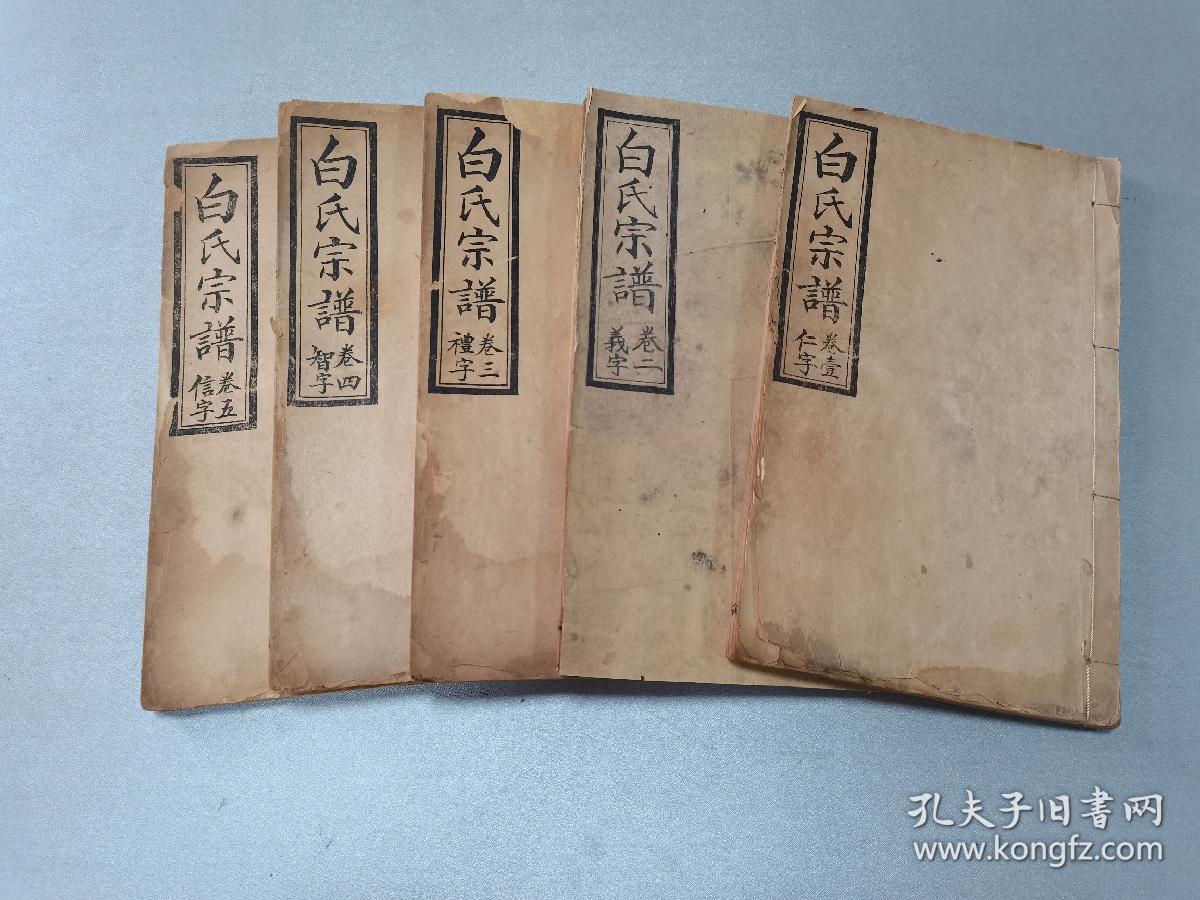 白氏宗譜
卷壹
仁字
白氏宗譜
卷二
義字
白氏宗譜
卷三
禮字
白氏宗譜
卷四
智字
白氏宗譜
卷五
信字
孔夫子旧書网
www.kongfz.com